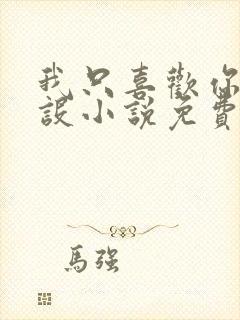 我只喜歡你
設小說免費
馬強